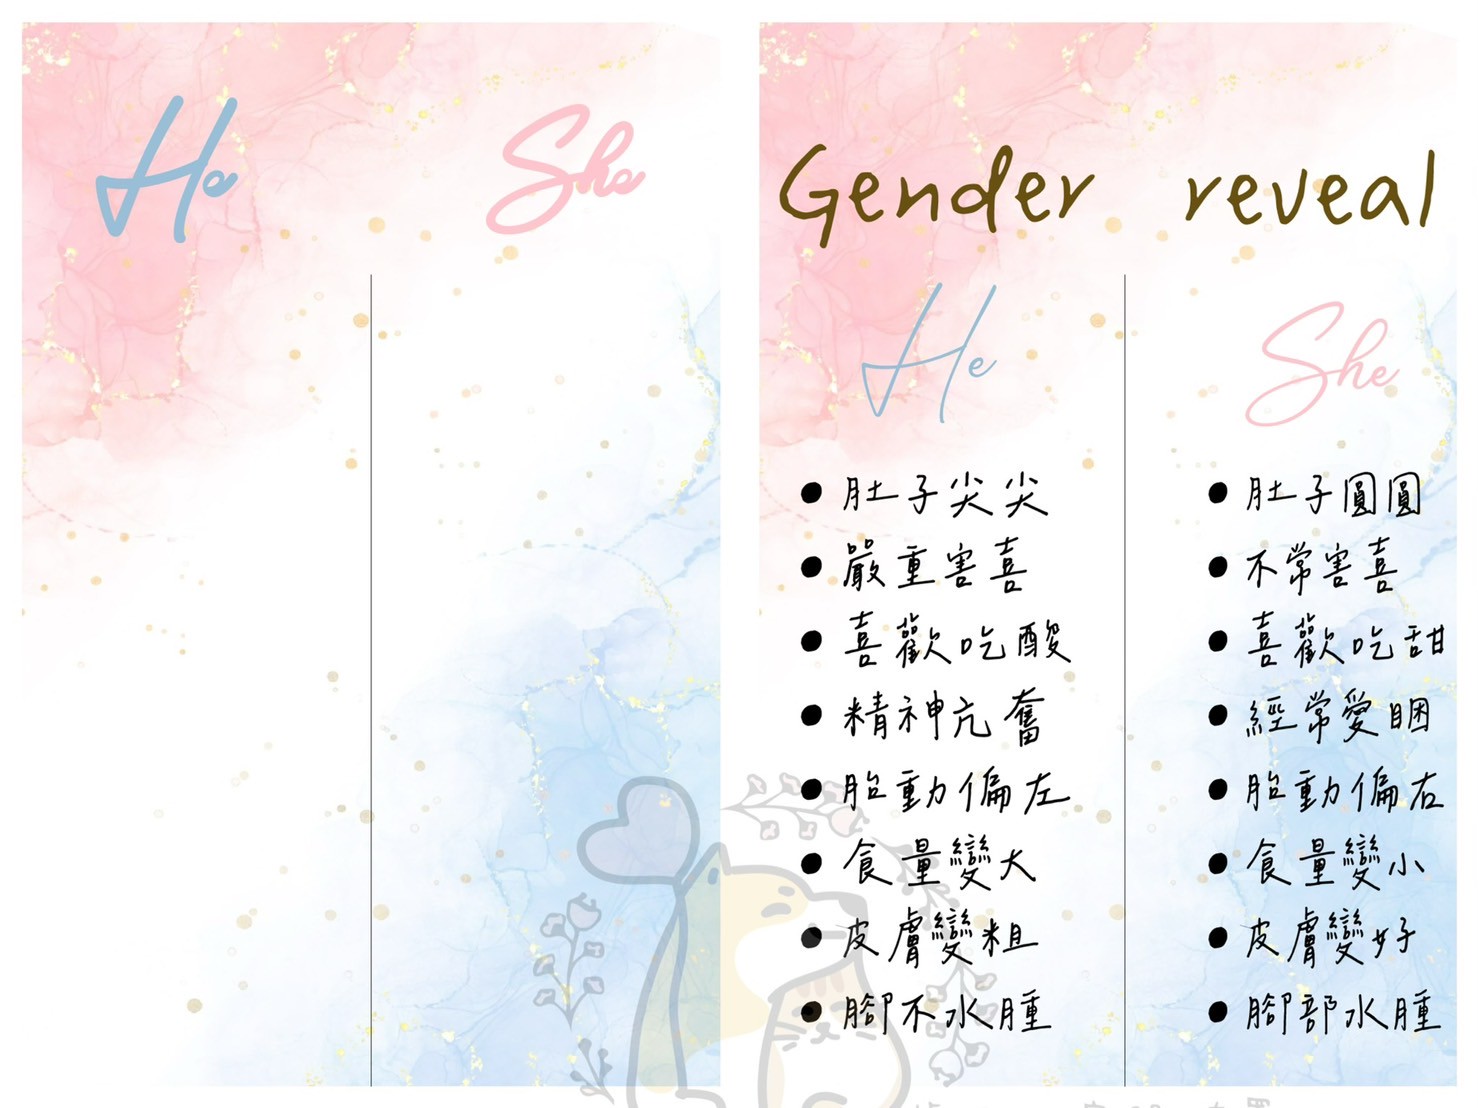 He She
Gender reveal
He She
肚子尖尖
嚴重害喜
喜歡吃酸
精神亢奮
胎動偏左
食量變大
皮膚變粗
腳不水腫
肚子圓圓
不常害喜
喜歡吃甜
經常愛睏
胎動偏右
食量變小
皮膚變好
腳部水腫